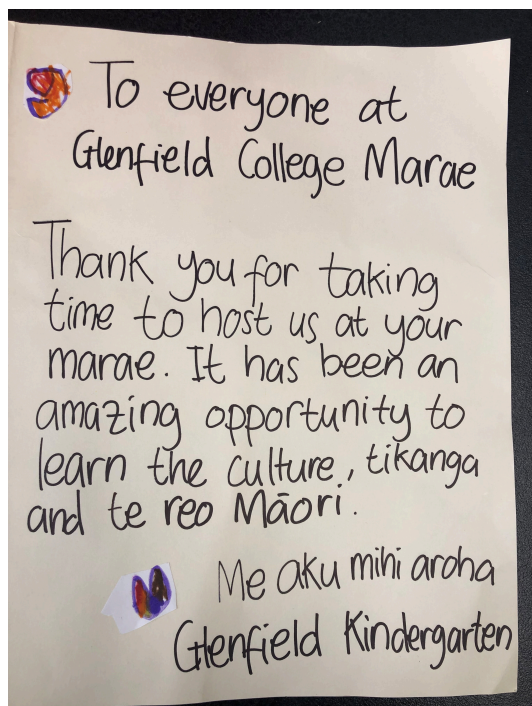 To everyone at
Glenfield College Marae
Thank you for taking
time to host us at your
marae. It has been an
amazing opportunity to
learn the culture, tikanga
and te reo Māori.
Me aku mihi aroha
Glenfield Kindergarten